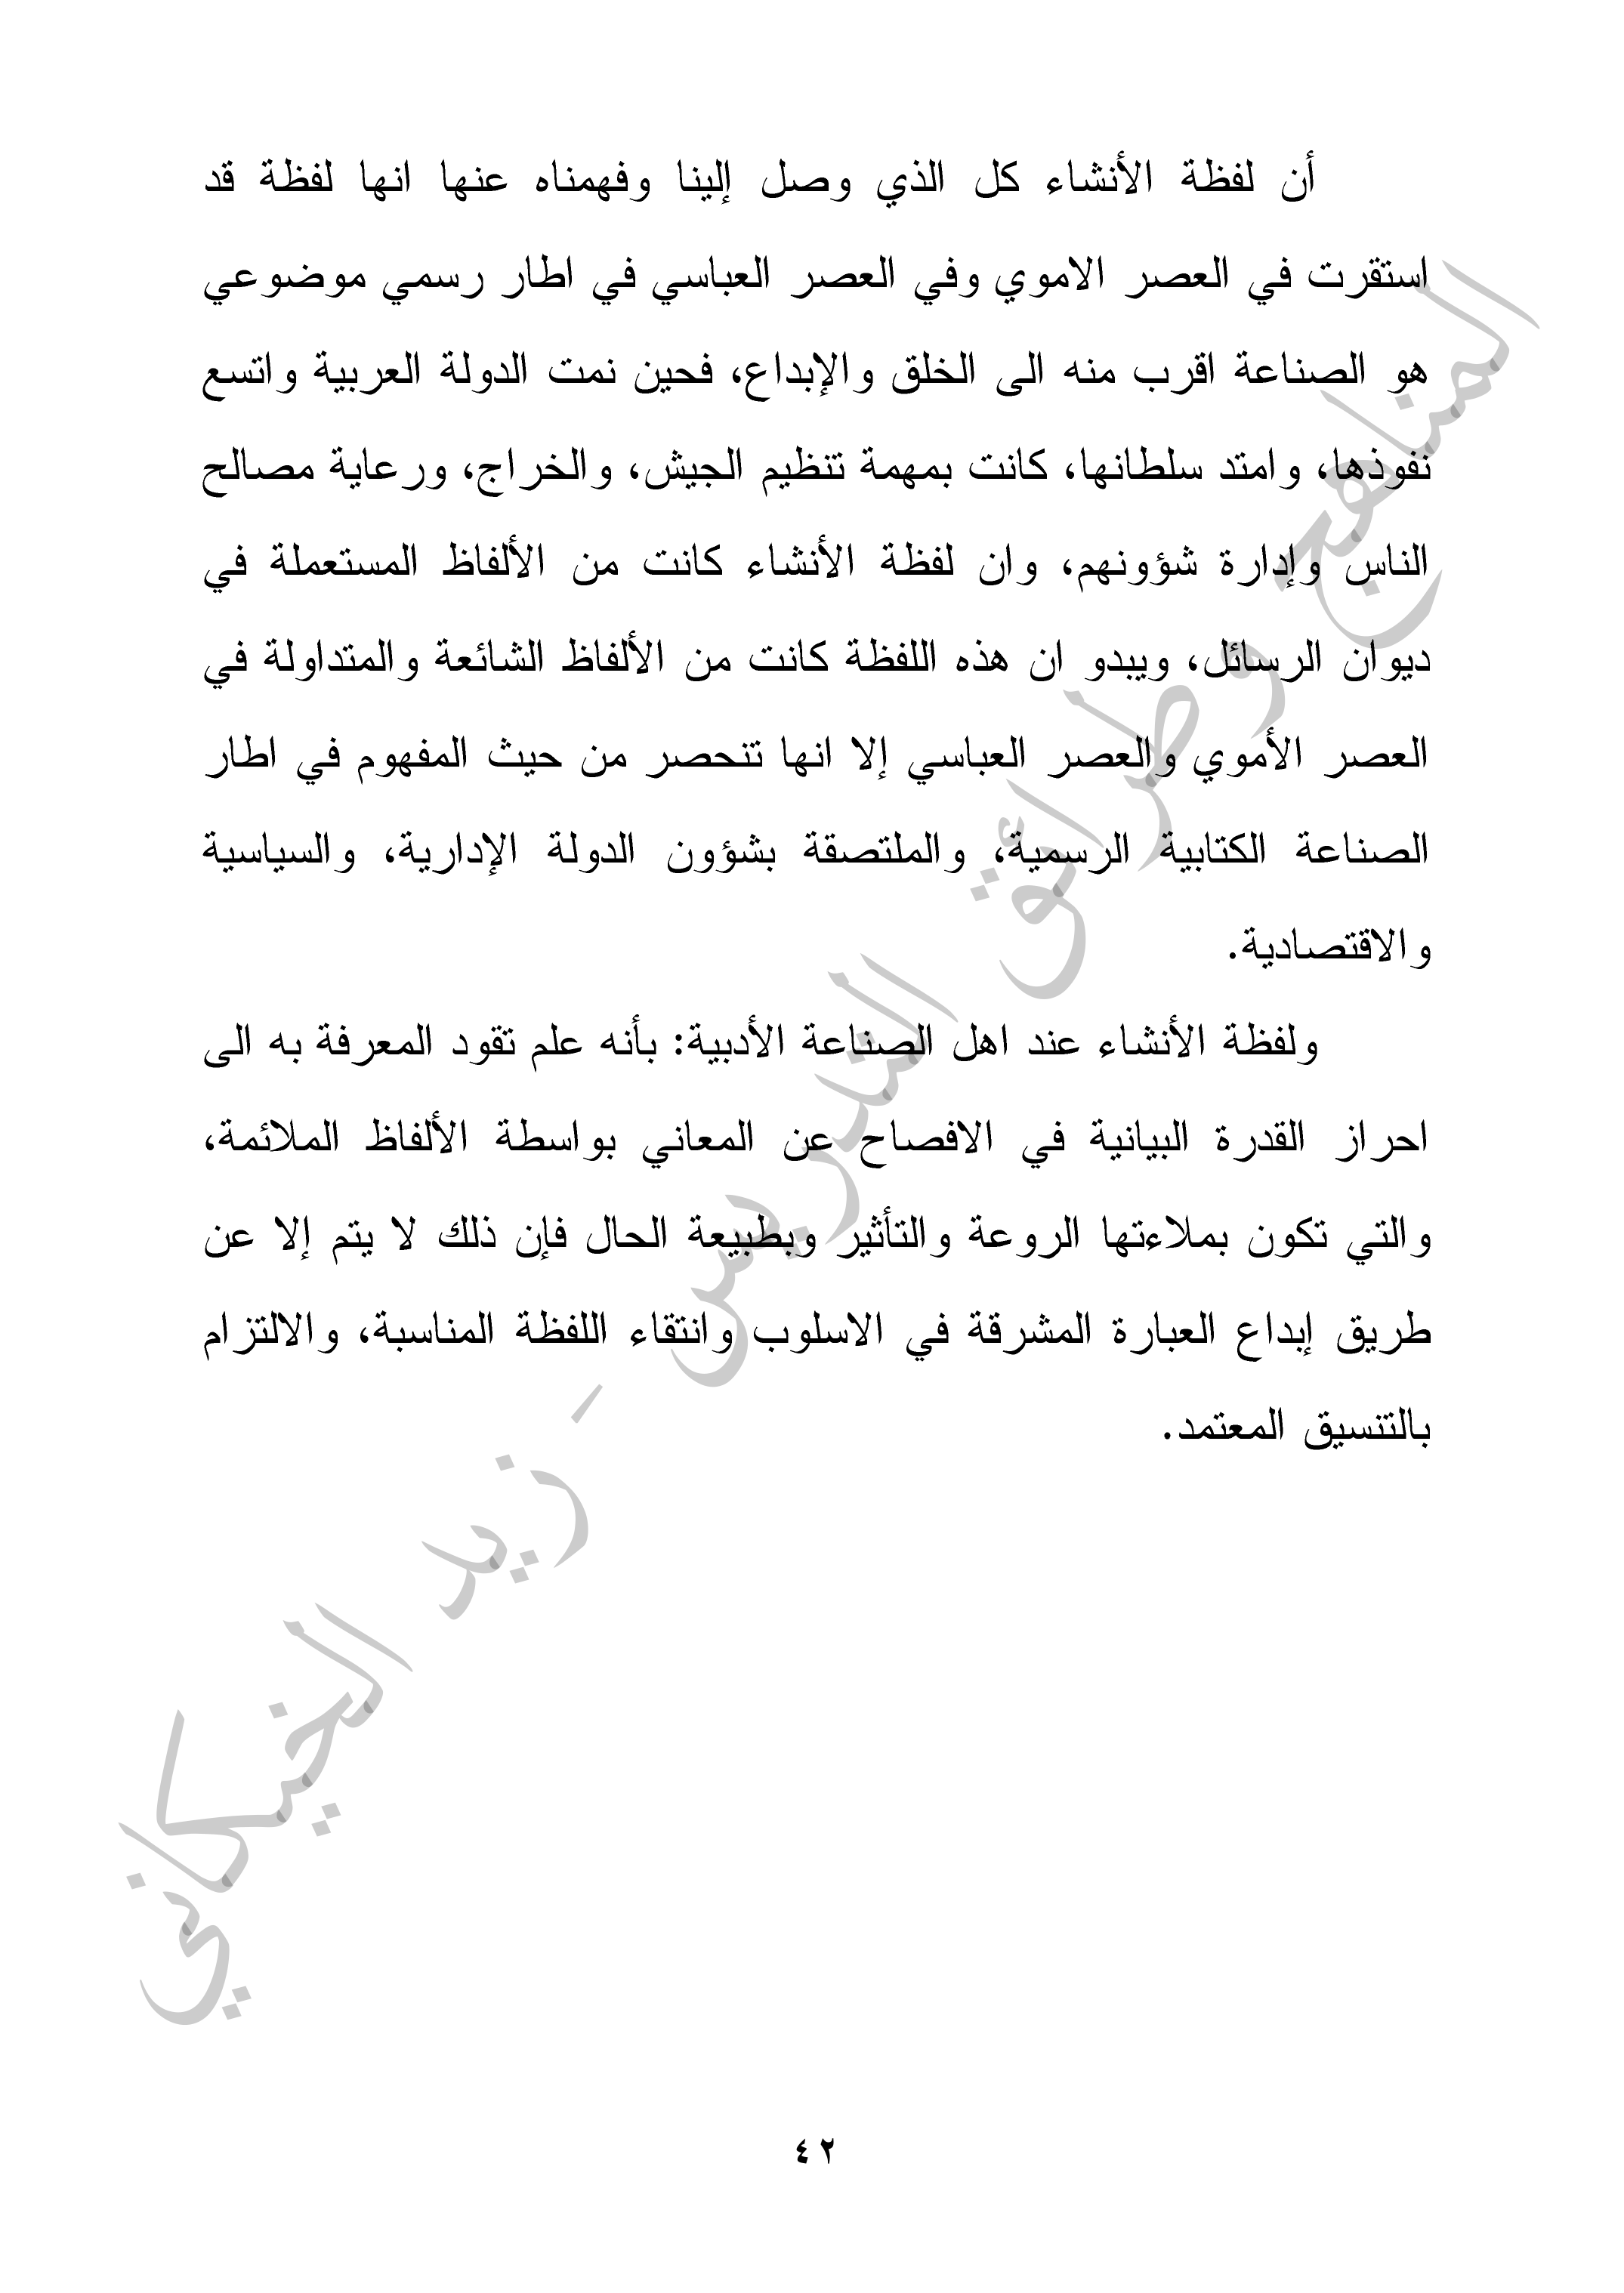 أن لفظة الأنشاء كل الذي وصل إلينا وفهمناه عنها انها لفظة قد
استقرت في العصر الاموي وفي العصر العباسي في اطار رسمي موضوعي
هو الصناعة اقرب منه الى الخلق والإبداع، فحين نمت الدولة العربية واتسع
نفوذها، وامتد سلطانها، كانت بمهمة تنظيم الجيش، والخراج، ورعاية مصالح
الناس وإدارة شؤونهم، وان لفظة الأنشاء كانت من الألفاظ المستعملة في
ديوان الرسائل، ويبدو ان هذه اللفظة كانت من الألفاظ الشائعة والمتداولة في
العصر الأموي والعصر العباسي إلا انها تنحصر من حيث المفهوم في اطار
الصناعة الكتابية الرسمية، والملتصقة بشؤون الدولة الإدارية، والسياسية
والاقتصادية.
ولفظة الأنشاء عند اهل الصناعة الأدبية: بأنه علم تقود المعرفة به الى
احراز القدرة البيانية في الافصاح عن المعاني بواسطة الألفاظ الملائمة،
والتي تكون بملاءتها الروعة والتأثير وبطبيعة الحال فإن ذلك لا يتم إلا عن
طريق إبداع العبارة المشرقة في الاسلوب وانتقاء اللفظة المناسبة، والالتزام
بالتنسيق المعتمد.
المناهج وطرائق التدريس - زيد الخيكاني
٤٢